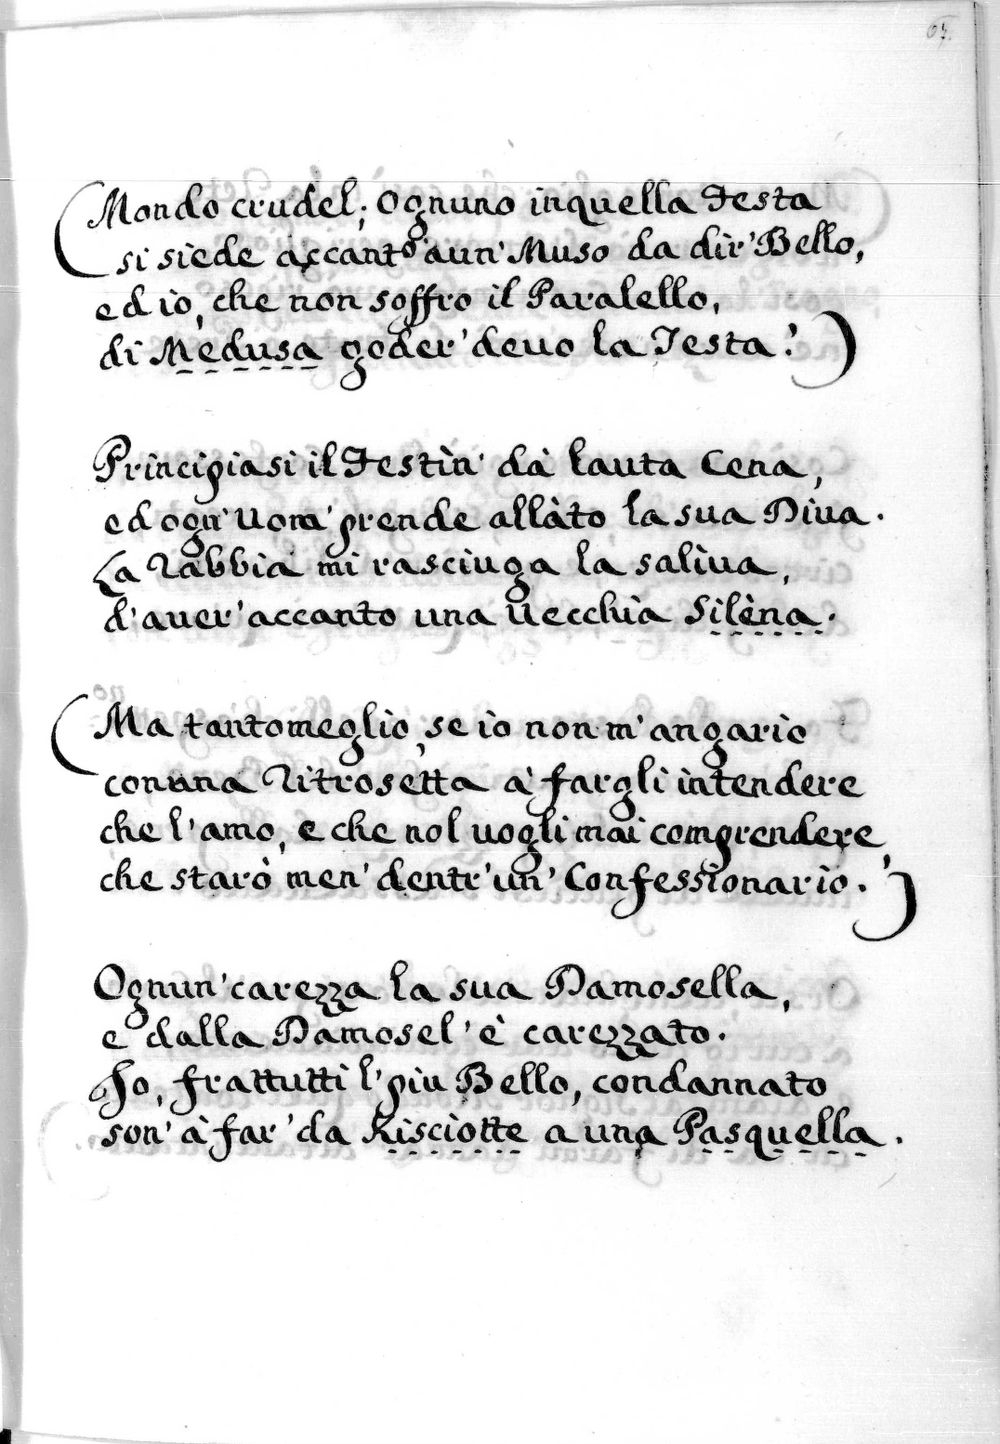 67.
(Mondo crudel; Ognuno inquella Festa
si siede accanto aun' Muso da dir' Bello,
ed io, che non soffro il Paralello,
di Medusa goder' deuo la Testa?)
Principiasi il Festìn' dà lauta Cena,
ed ogn' Uom' prende allàto la sua Diua.
La Rabbia mi rasciuga la salìua,
d'auer' accanto una Uecchià Silèna.
(Ma tantomeglio, se io non m' angarìo
conuna Ritrosetta à fargli intendere
che l'amo, e che nol uogli mai comprendere,
che starò men' dentr' un' Confessionario.)
Ognun' carezza la sua Damosella,
e dalla Damosel' è carezzato.
Io, frattutti l' più Bello, condannato
son' à far' da Risciòtte a una Pasquella.